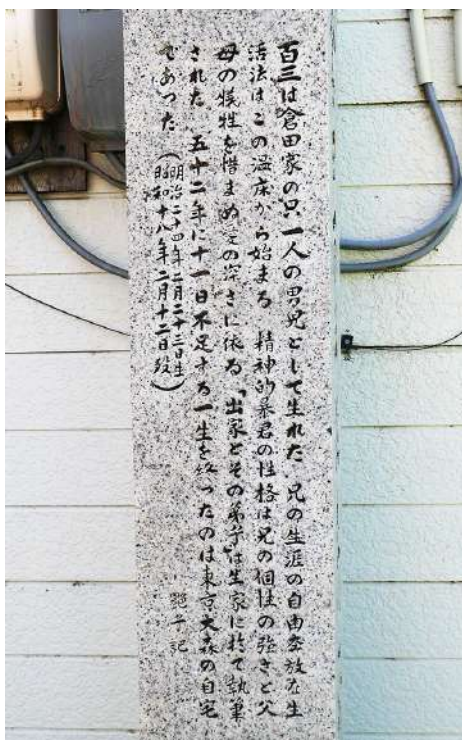 百三は倉田家の只一人の男児として生れた 兄の生涯の自由奔放な生
活法はこの温床から始まる 精神的暴君の性格は兄の個性の強さと父
母の犠牲を惜まぬ愛の深さに依る 「出家とその弟子」は生家に於て執筆
された 五十二年に十一日不足する一生を終ったのは東京大森の自宅
であった (明治二十四年二月二十三日生
昭和十八年二月十二日歿)
艶子記